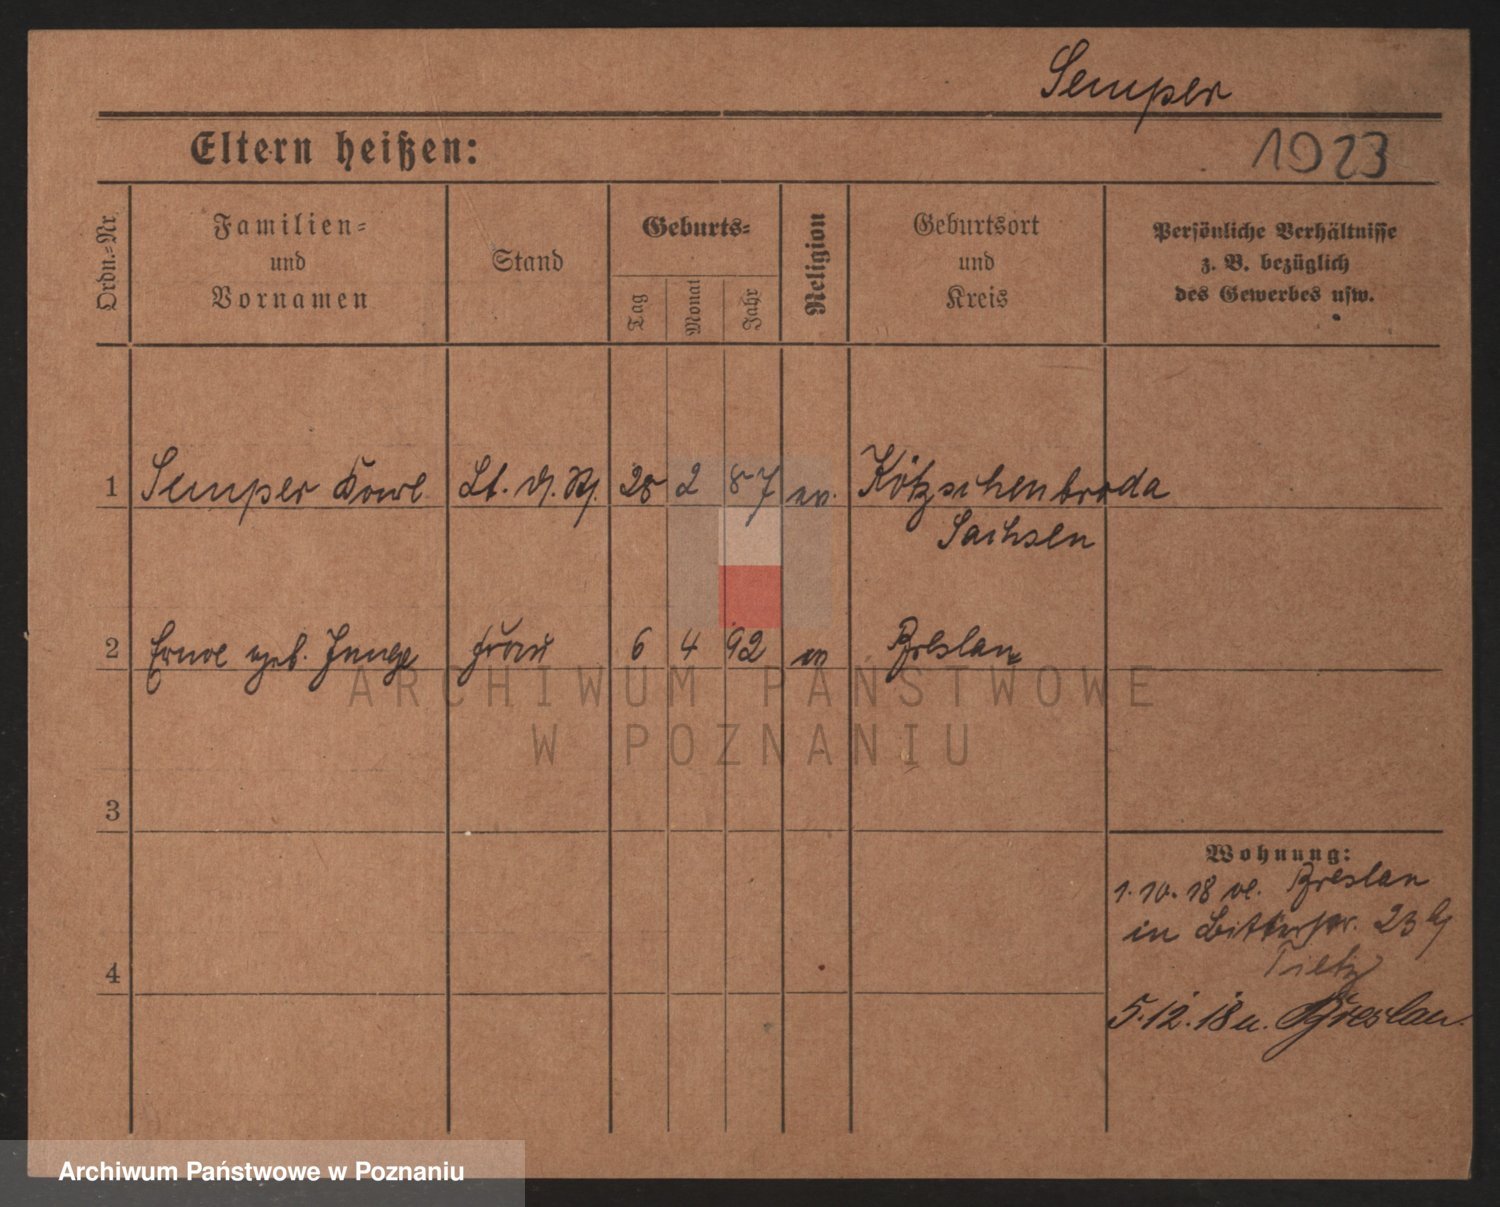 Semper
1923
Eltern heißen:
Ordn.=Nr.
Familien=
und
Vornamen
Stand
Geburts=
Tag
Monat
Jahr
Religion
Geburtsort
und
Kreis
Persönliche Verhältnisse
z. B. bezüglich
des Gewerbes usw.
1 Semper Karl Lt. d. R. 28 2 87 ev. Kötzschenbroda
Sachsen
2 Erna geb. Junge Frau 6 4 92 Breslau
3
4
Wohnung:
1.10.18 Breslau
in 23
Tietz
5.12.18 Breslau.
ARCHIWUM PAŃSTWOWE
W POZNANIU
Archiwum Państwowe w Poznaniu